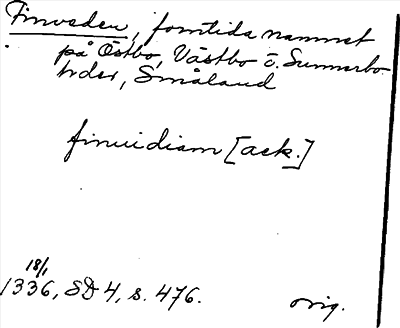 Finveden, forntida namnet
på Östbo, Västbo o. Sunnerbo
hrder, Småland
finuidiam [ack.]
18/1
1336, SD 4, s. 476. orig.